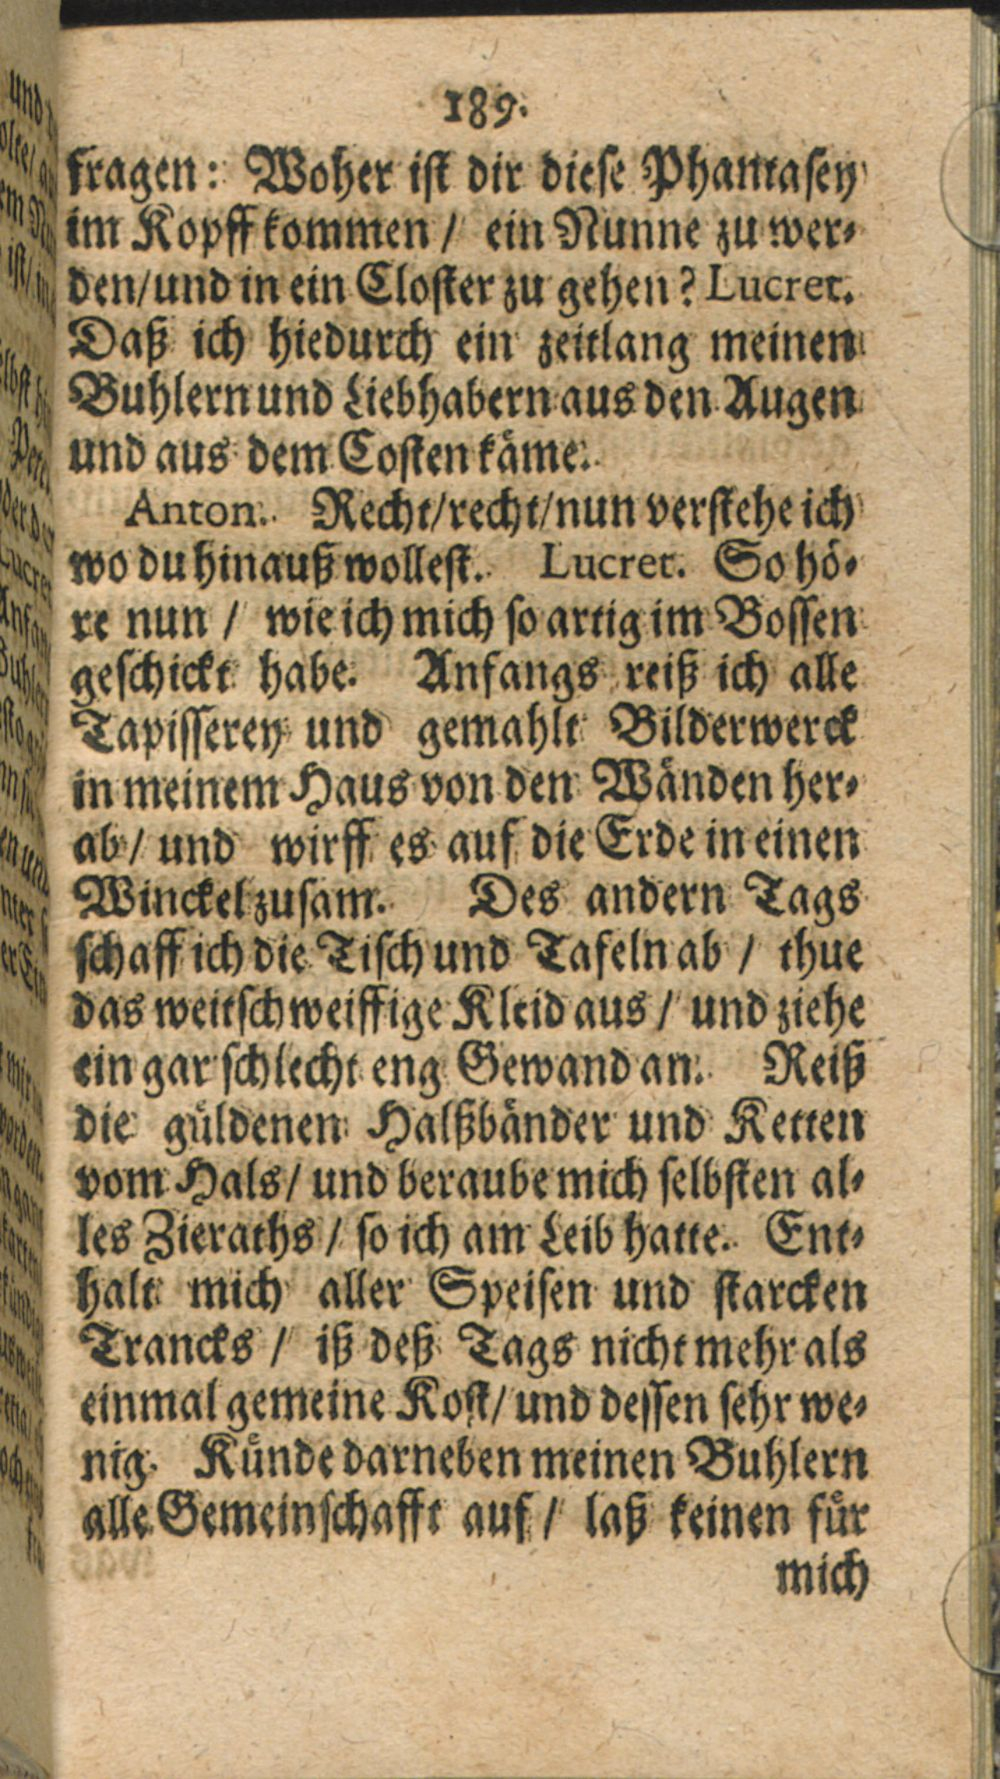 189.
fragen: Woher ist dir diese Phantasey
im Kopff kommen / ein Nunne zu wer-
den/und in ein Closter zu gehen? Lucret.
Daß ich hiedurch ein zeitlang meinen
Buhlern und Liebhabern aus den Augen
und aus dem Costen käme.
Anton. Recht/recht/nun verstehe ich
wo du hinauß wollest. Lucret. So hö-
re nun / wie ich mich so artig im Bossen
geschickt habe. Anfangs reiß ich alle
Tapisserey und gemahlt Bilderwerck
in meinem Haus von den Wänden her-
ab / und wirff es auf die Erde in einen
Winckel zusam. Des andern Tags
schaff ich die Tisch und Tafeln ab / thue
das weitschweiffige Kleid aus / und ziehe
ein gar schlecht eng Gewand an. Reiß
die güldenen Halßbänder und Ketten
vom Hals / und beraube mich selbsten al-
les Zieraths / so ich am Leib hatte. Ent-
halt mich aller Speisen und starcken
Trancks / iß deß Tags nicht mehr als
einmal gemeine Kost/ und dessen sehr we-
nig. Künde darneben meinen Buhlern
alle Gemeinschafft auf / laß keinen für
mich